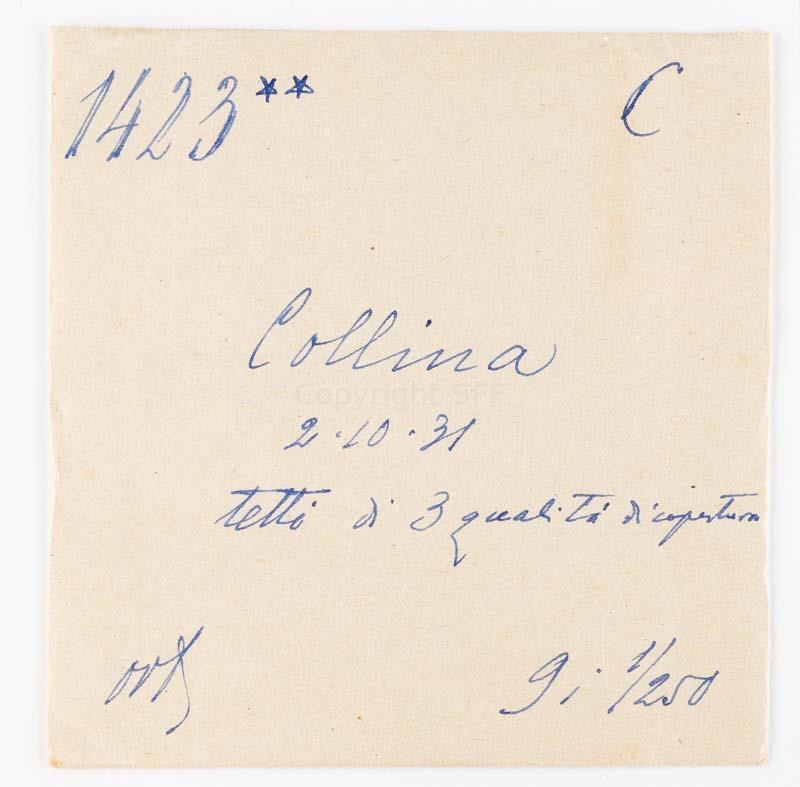 1423** C
Collina
Copyright SFF
2.10.31
tetti di 3 qualità di copertura
ort
9 i 1/250